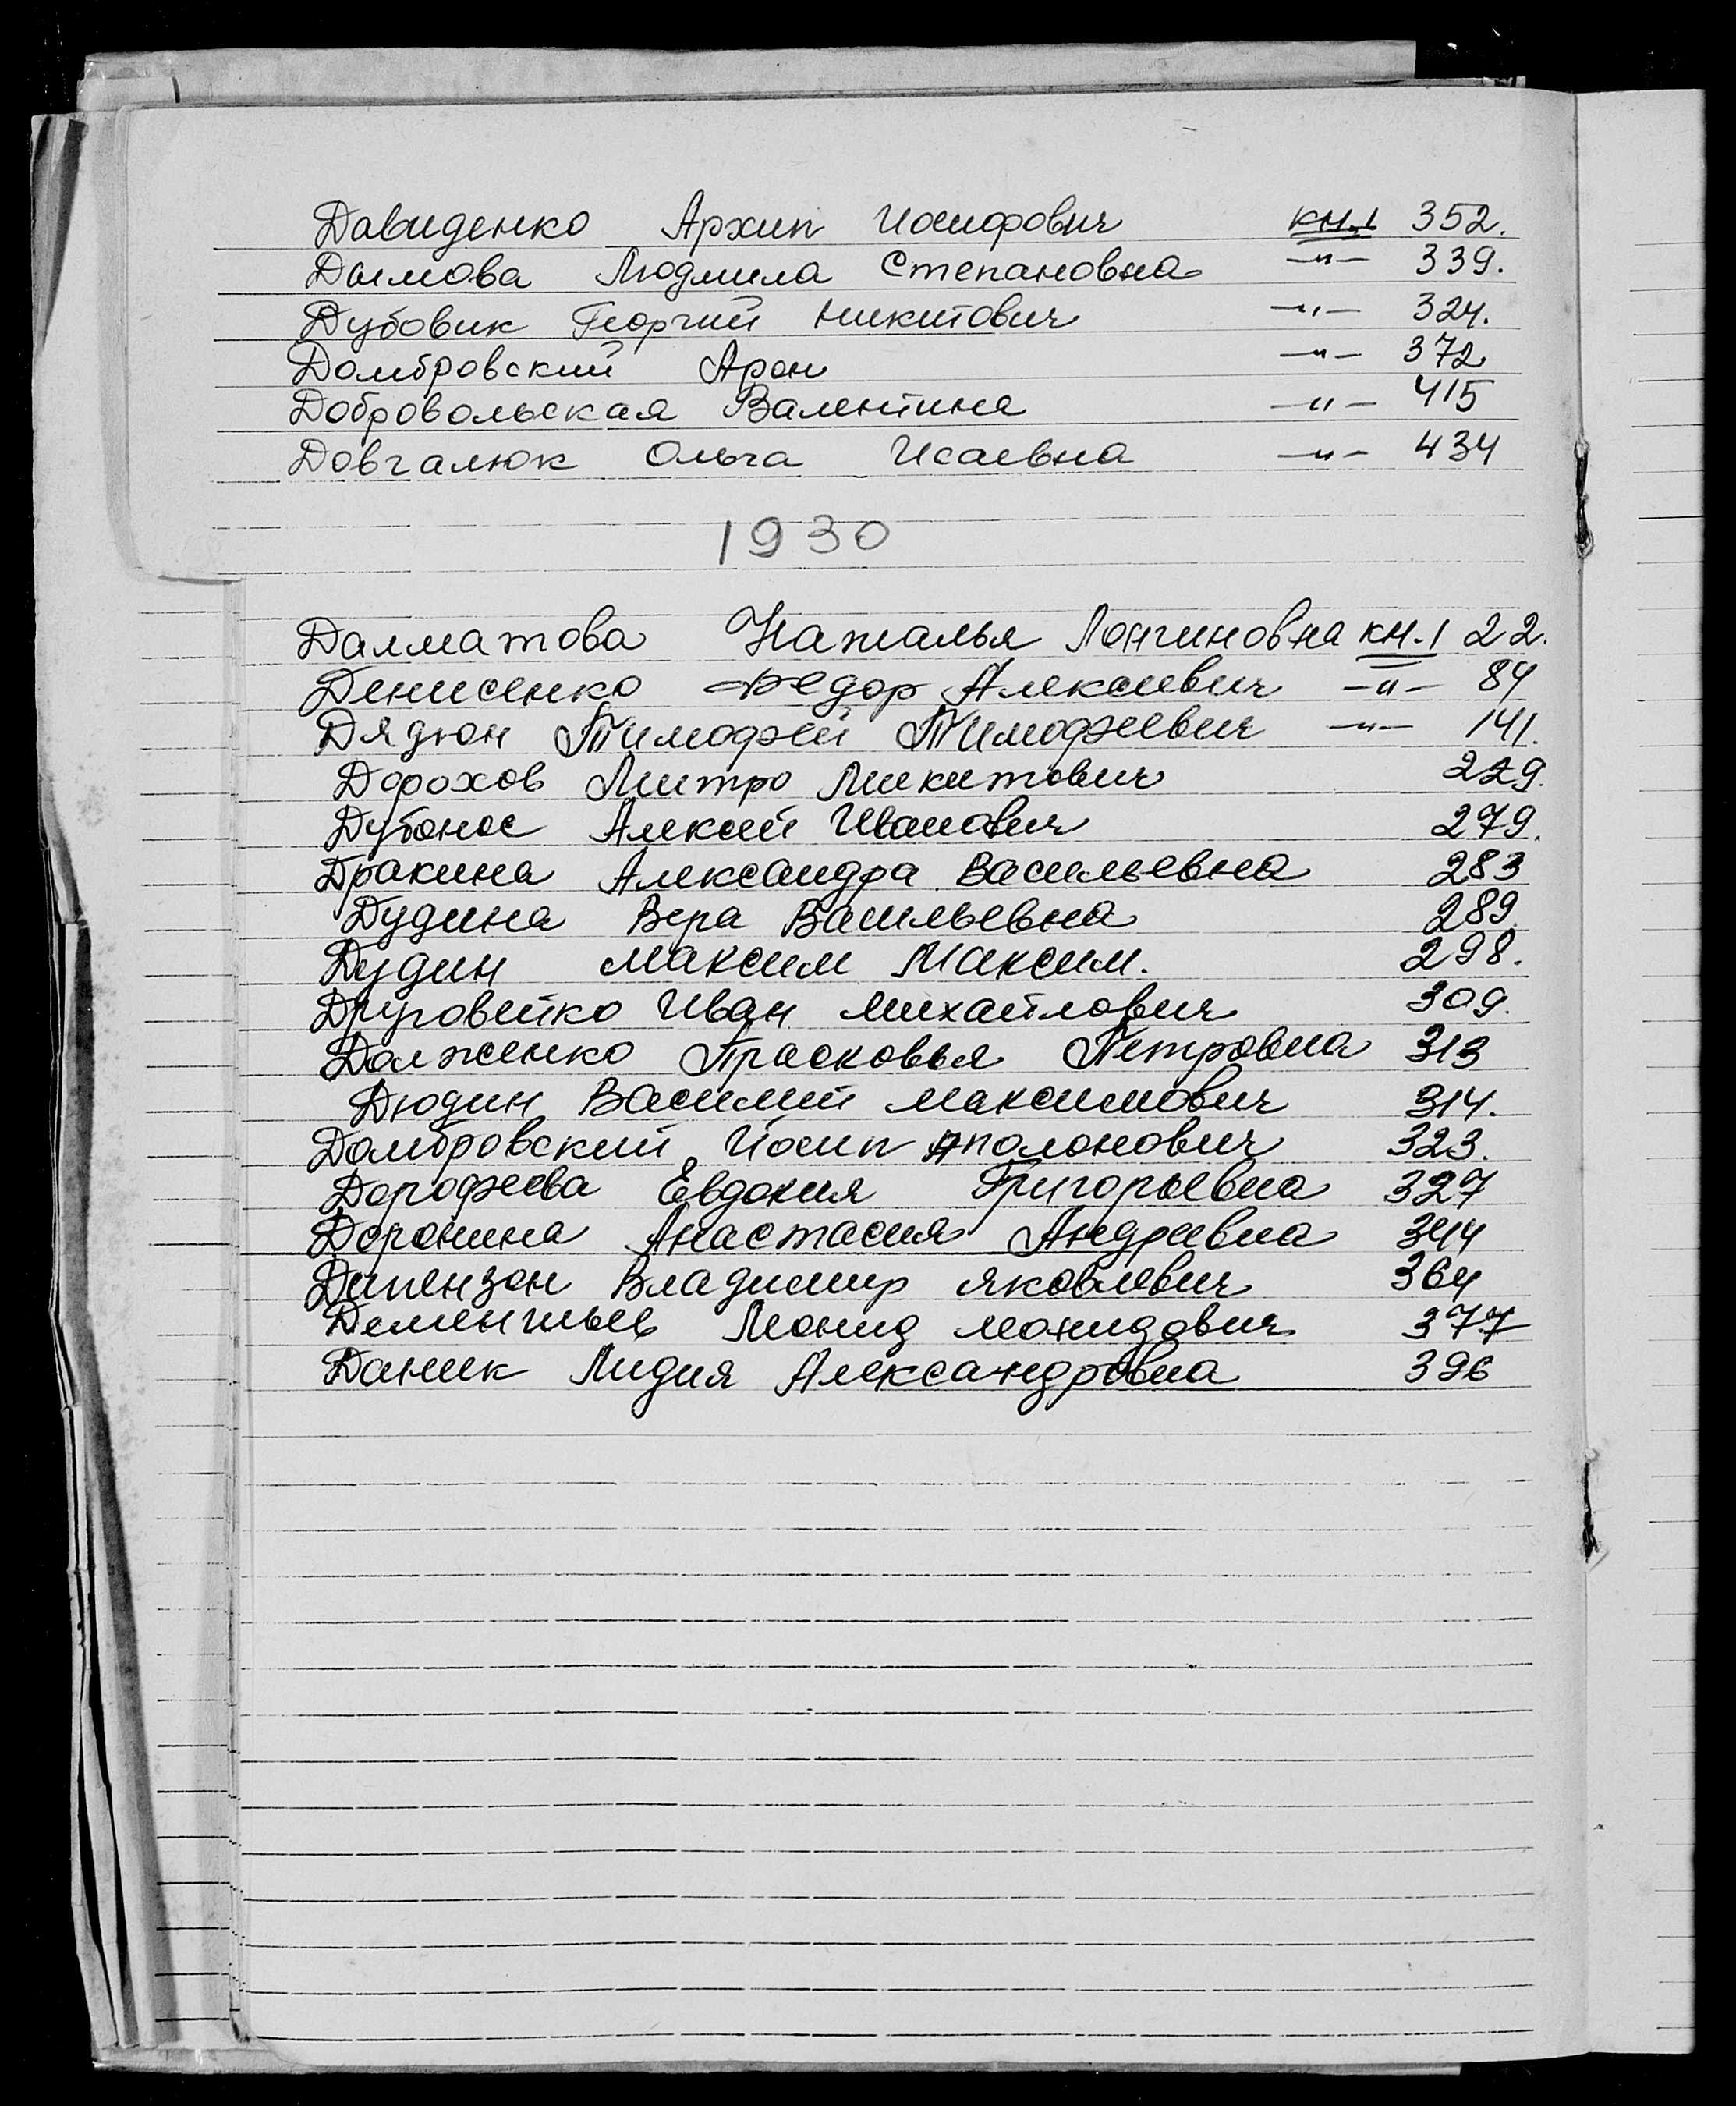 Давиденко Архип Иосифович кн.1 352.
Дымова Людмила Степановна —"— 339.
Дубовик Георгий Никитович —"— 324.
Домбровский Арон —"— 372
Добровольская Валентина —"— 415
Довгалюк Ольга Исаевна —"— 434
1930
Далматова Наталья Лонгиновна кн.1 22.
Денисенко Федор Алексеевич —"— 84
Дядюн Тимофей Тимофеевич —"— 141.
Дорохов Митро Микитович 229.
Дубонос Алексей Иванович 279.
Дракина Александра Васильевна 283
Дудина Вера Васильевна 289.
Дудин Максим Максим. 298.
Друговейко Иван Михайлович 309.
Долженко Прасковья Петровна 313
Дюдин Василий Максимович 314.
Домбровский Йосип Аполонович 323.
Дорофеева Евдокия Григорьевна 327
Доронина Анастасия Андреевна 344
Дипензон Владимир Яковлевич 364
Дементьев Леонид Леонидович 377
Даник Лидия Александровна 396